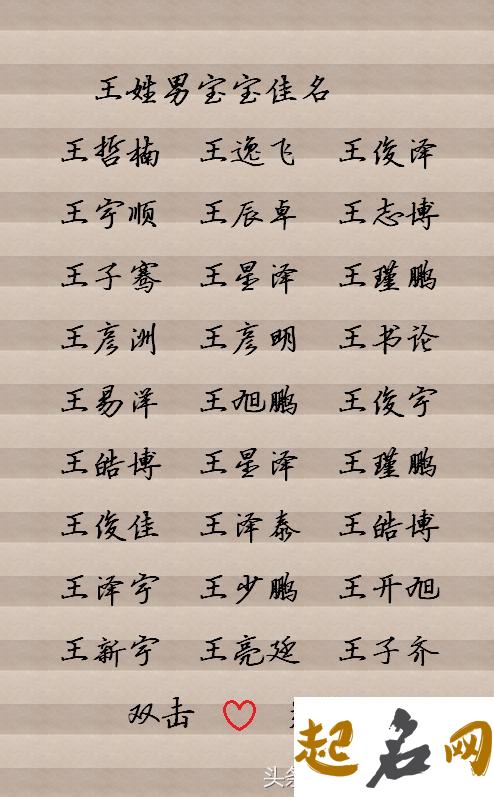 王姓男宝宝佳名
王哲楠 王逸飞 王俊泽
王宇顺 王辰卓 王志博
王子骞 王星泽 王瑾鹏
王彦洲 王彦明 王书论
王易洋 王旭鹏 王俊宇
王皓博 王星泽 王瑾鹏
王俊佳 王泽泰 王皓博
王泽宇 王少鹏 王开旭
王新宇 王亮延 王子齐
双击
头条
起名网